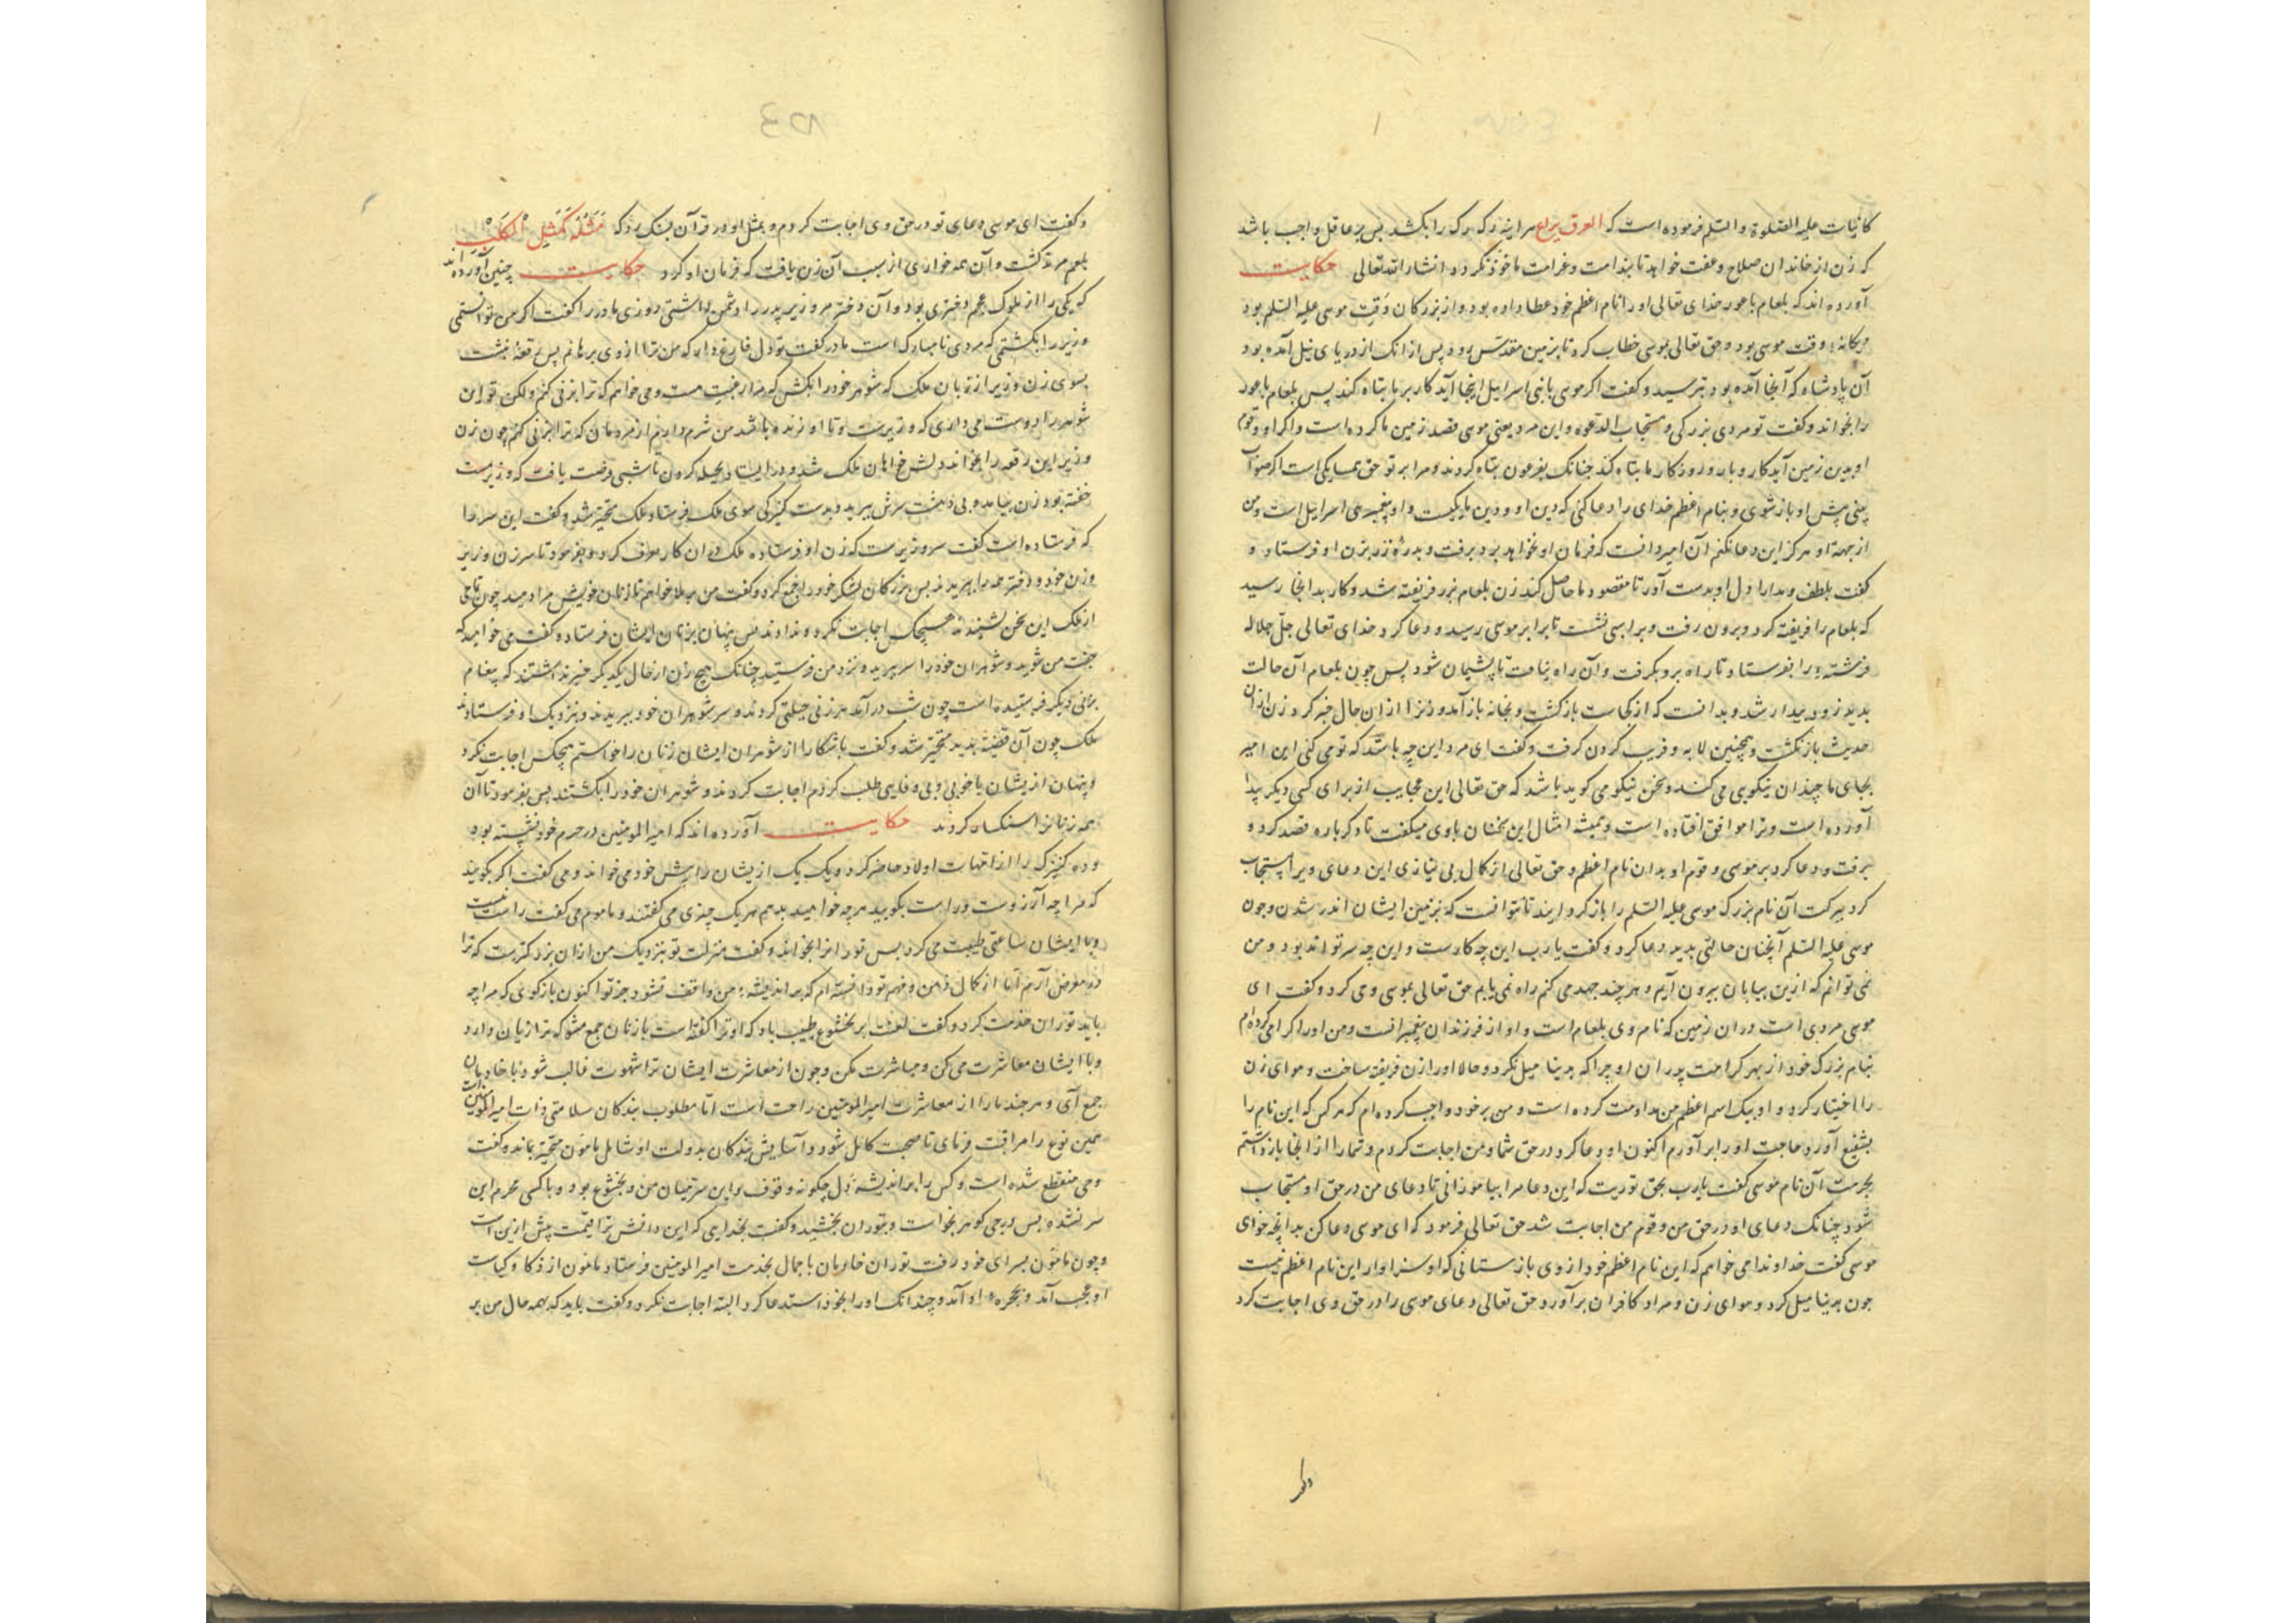 کاینات علیه الصلوة والسلم فرموده است که العرق نزاع هر اینه رک رک را بکشد بس بر عاقل واجب باشد
که زن از خاندان صلاح وعفت خواهد تا بندامت وغرامت ماخوذ نکردد انشاء الله تعالی حکایت
آورده اند که بلعام باعور خدای تعالی اورا نام اعظم خود عطا داده بود واز بزرکان وقت موسی علیه السلم بود
ویکانه وقت موسی بود وحق تعالی بموسی خطاب کرد تا بزمین مقدس رود پس از انک از دریای نیل آمده بود
آن پادشاه که آنجا آمده بود بترسید وکفت اکر موسی با بنی اسرایل اینجا آید کار بر ما بتاه کند پس بلعام باعور
را بخواند وکفت تو مردی بزرکی ومستجاب الدعوه واین مرد یعنی موسی قصد زمین ما کرده است واکر او وقوم
او بدین زمین آید کار وبار وروزکار ما بتاه کند چنانک بفرعون بتاه کردند ومرا بر تو حق همسایکی است اکر صواب
بینی پیش او باز شوی وبنام اعظم خدای را دعا کنی که دین او ودین ما یکیست واو پیغمبر بنی اسرایل است ومن
از جهة او هرکز این دعا نکنم آن امیر دانست که فرمان او نخواهد برد برفت وبدرۀ زر بزن او فرستاد و
کفت بلطف ومدارا دل او بدست آور تا مقصود ما حاصل کند زن بلعام بزر فریفته شد وکار بدانجا رسید
که بلعام را فریفته کرد وبرون رفت وبر اسبی نشست تا برابر موسی رسید ودعا کرد خدای تعالی جل جلاله
فرشته را بفرستاد تا راه برو بکرفت وآن راه نیافت تا پشیمان شود پس چون بلعام آن حالت
بدید زود بیدار شد وبدانست که از کجاست بازکشت وبخانه باز آمد وزنرا از ان حال خبر کرد زن ازان
حدیث بازنکشت وهمچنین لابه وفریب کردن کرفت وکفت ای مرد این چه باشد که تو می کنی این امیر
بجای ما چندان نیکویی می کند وسخن نیکو می کوید باشد که حق تعالی این عجایب از برای کسی دیکر پیدا
آورده است وترا موافق افتاده است وهمیشه امثال این سخنان با وی میکفت تا دکرباره قصد کرد و
برفت ودعا کرد بر موسی وقوم او بدان نام اعظم وحق تعالی از کمال بی نیازی این دعای ویرا مستجاب
کرد ببرکت آن نام بزرک موسی علیه السلم را باز کردایند تا نتوانست که بزمین ایشان اندر شدن وچون
موسی علیه السلم آنچنان حالتی بدید دعا کرد وکفت یا رب این چه کارست واین چه سر تواند بود ومن
نمی توانم که ازین بیابان بیرون آیم وهر چند جهد می کنم راه نمی یابم حق تعالی بموسی وحی کرد وکفت ای
موسی مردی است دران زمین که نام وی بلعام است واو از فرزندان پیغمبرانست ومن اورا اکرامی کرده ام
بنام بزرک خود از بهر کرامت پدران او چرا که بدینا میل نکرد وحالا اورا زن فریفته ساخت وهوای زن
را اختیار کرد واو بیک اسم اعظم من مداومت کرده است ومن بر خود واجب کرده ام که هرکس که این نام را
بشفیع آورد حاجت اورا بر آورم اکنون او دعا کرد در حق شما ومن اجابت کردم وشمارا از انجا بازداشتم
بحرمت آن نام موسی کفت یا رب بحق توریت که این دعا مرا بیاموزانی تا دعای من در حق او مستجاب
شود چنانک دعای او در حق من وقوم من اجابت شد حق تعالی فرمود که ای موسی دعا کن بدانچه خوای
موسی کفت خداوندا می خواهم که این نام اعظم خود از وی بازستانی که او سزاوار این نام اعظم نیست
چون بدینا میل کرد وهوای زن ومراد کافران برآورد حق تعالی دعای موسی را در حق وی اجابت کرد
وکفت ای موسی دعای تو در حق وی اجابت کردم وبمثل او در قرآن بسنک زد که مَثَلُهُ كَمَثَلِ الْكَلْبِ
بلعم مرتد کشت وآن همه خواری از سبب آن زن یافت که فرمان او کرد حکایت چنین آورده اند
که یکی را از ملوک عجم دختری بود وآن دختر مر وزیر پدر را دشمن داشتی روزی مادر را کفت اکر من توانستمی
وزیر را بکشتمی که مردی نامبارک است مادر کفت تو دل فارغ دار که من ترا از وی برهانم پس رقعۀ نبشت
بسوی زن وزیر از زبان ملک که شوهر خود را بکش که مرا رغبت هست ومی خواهم که ترا بزنی کنم ولکن تو این
شوهر را دوست می داری که وزیرست وتا او زنده باشد من شرم دارم از مردمان که ترا بزنی کنم چون زن
وزیر این رقعه را بخواند دلش خواهان ملک شد ودر ایستاد بحیله کردن تا شبی فرصت یافت که وزیر مست
خفته بود زن بیامد وبی دهشت سرش ببرید وبدست کنیزکی سوی ملک فرستاد ملک متحیر شد وکفت این سر را
که فرستاده است کفت سر وزیرست که زن او فرستاده ملک دران کار صرف کرد وبفرمود تا سر زن وزیر
وزن خود ودختر همه را ببریدند بس بزرکان لشکر خود را جمع کرد وکفت من بملا خواهم تا زنان خویش مرا دهید چون تمامی
از ملک این سخن بشنیدند هیچکس اجابت نکرد وندادند بس پنهان بزنان ایشان فرستاد وکفت می خواهم که
جفت من شوید وشوهران خود را سر ببرید ونزد من فرستید چنانک هیچ زن از حال یکدیکر خبر نداشتند که پیغام
بزنی دیکر فرستیده است چون شب درآمد هر زنی حیلتی کردند وسر شوهران خود ببریدند وبنزدیک او فرستادند
ملک چون آن قضیة بدید متحیر شد وکفت باشکارا از شوهران ایشان زنان را خواستم هیچکس اجابت نکرد
وپنهان ازیشان با خوبی وبی وفایی طلب کردم اجابت کردند وشوهران خود را بکشتند پس بفرمود تا آن
همه زنانرا سنکسار کردند حکایت آورده اند که امیر المومنین در حرم خود نشسته بود
وده کنیزک را از امهات اولاد حاضر کرد ویک یک ازیشان را پیش خود می خواند ومی کفت اکر بکویید
که مرا چه آرزوست وراست بکویید هر چه خواهید بدهم هر یک چیزی می کفتند ومامون می کفت راست نیست
وبا ایشان ساعتی طیبت می کرد بس توران را بخواند وکفت منزلت تو بنزدیک من ازان بزرکترست که ترا
در معرض آرم اما از کمال ذهن وفهم تو دانسته ام که بر اندیشه من واقف نشود جز تو اکنون بازکوی که مرا چه
باید توران خدمت کرد وکفت لعنت بر بختیشوع طبیب باد که او ترا کفته است با زنان جمع مشو که ترا زیان دارد
وبا ایشان معاشرت می کن ومباشرت مکن وچون از معاشرت ایشان ترا شهوت غالب شود با خادمان
جمع آی وهر چند مارا از معاشرت امیر المومنین راحت است اما مطلوب بندکان سلامتی ذات امیر المومنین است
همین نوع را مراقبت فرمای تا صحبت کامل شود وآسایش بندکان بدولت او شامل مامون متحیر بماند وکفت
وحی منقطع شده است وکس را بر اندیشۀ دل چکونه وقوف واین سر میان من وبختیشوع بود وبا کسی محرم این
سر نشده بس درجی کوهر بخواست وبتوران بخشید وکفت بخدایی که این دانش ترا قیمت پیش ازین است
وچون مامون بسرای خود رفت توران خادمان با جمال بخدمت امیر المومنین فرستاد مامون از ذکا وکیاست
او عجب آمد وبحجرۀ او آمد وچندانک اورا بخود استدعا کرد البته اجابت نکرد وکفت باید که بهمه حال من بر